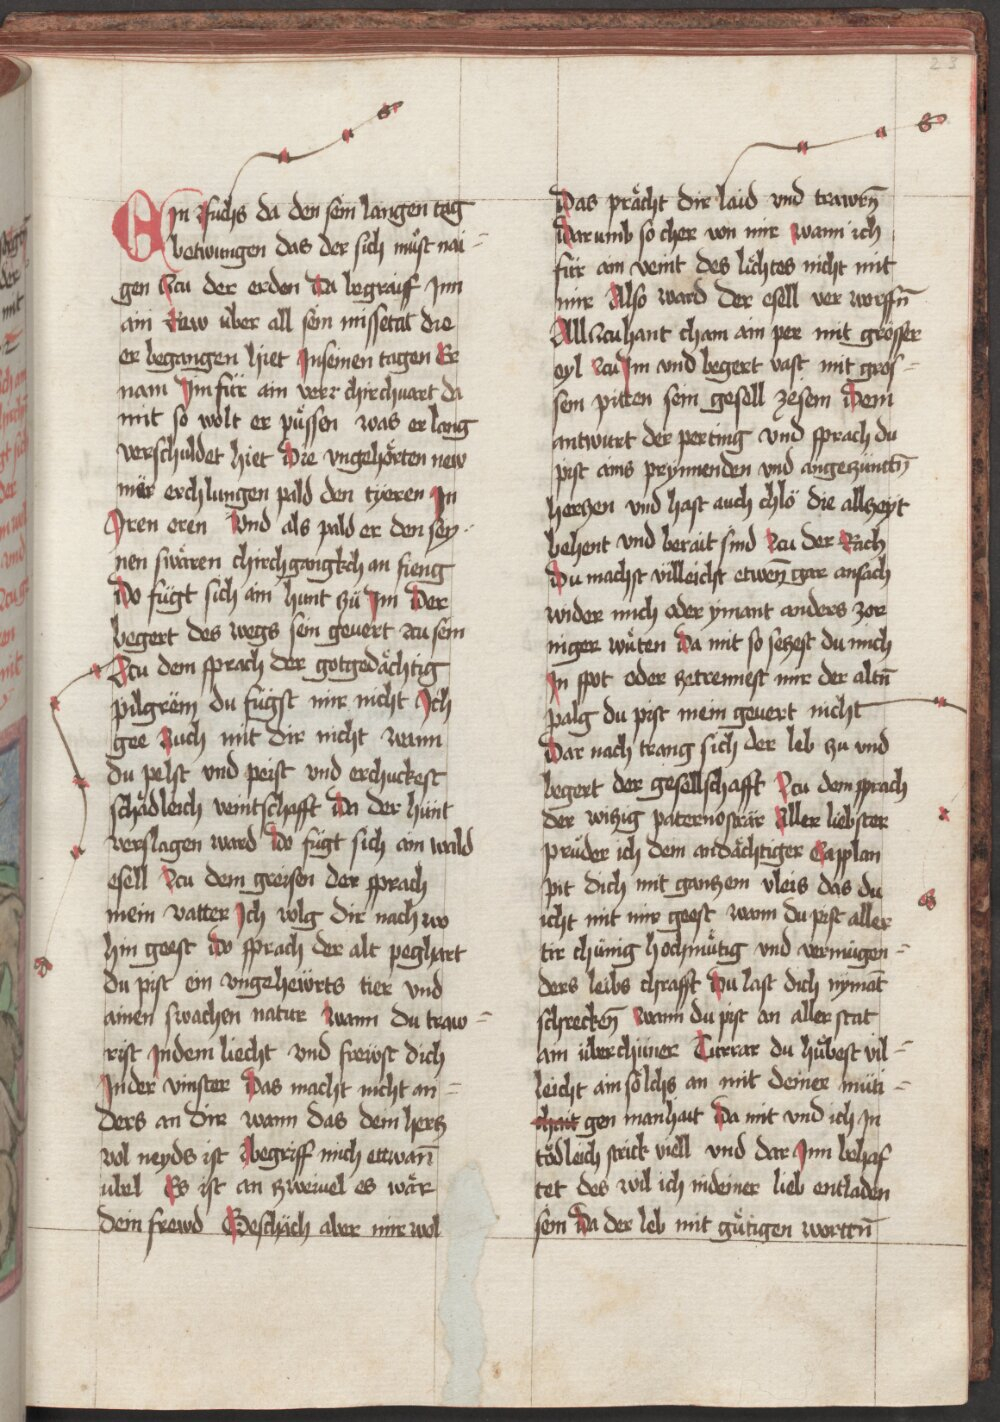 23
Ein Fuchs da den sein langen tag
betwungen das der sich mu̍st nai =
gen Zcu der erden Da begraiff Inn
ain Rew über all sein missetat die
er begangen hiet Inseinen tagen Er
nam Im für ain verr chirchuart da
mit so wolt er püssen was er lang
verschuldet hiet Die vngehörten new
mär erchlungen pald den tyeren In
Iren eren Und als pald er den sey-
nen swären chirchgangkch an fieng
Do fügt sich ain hunt zü Im Der
begert des wegs sein geuert zcu sein
Zcu dem sprach der gotgedächtig
pilgreim du fügst mir nicht Ich
gee Auch mit dir nicht wann
du pelst vnd peist vnd erchuckest
schädleich veintschafft Da der hunt
verslagen ward Do fügt sich ain wald
esell Zcu dem greisen der sprach
mein vatter Ich volg dir nach wo
hin geest Do sprach der alt peghart
Du pist ein vngeheürts tier vnd
ainen swachen natur Wann du traw =
rist Indem liecht vnd freẅst dich
Inder vinster Das macht nicht an =
ders an dir wann das dein hertz
vol neyds ist Begriff mich ettwan̄
übel Es ist an zweiuel es wär
dein frewd Geschäch aber mir wol
Das prächt dir laid vnd trawrn̄
Darumb so cher von mir Wann ich
für ain veint des liechtes nicht mit
mir Also ward der esell ver worffn̄
All Zcuhant cham ain per mit grösser
eyl Zcu Im vnd begert vast mit gros =
sem pitten sein gesell ze sein Dem
antwurt der perting vnd sprach du
pist ains prynnenden vnd angezüntn̄
hertzen vnd hast auch chlö die allzeyt
behent vnd berait sind Zcu der Rach
Du machst villeicht etwen̄ gar ainfach
wider mich oder ymant anders zor
niger wüten Da mit so setzest du mich
In spot oder zetrennest mir der altn̄
palg du pist mein geuert nicht
Dar nach trang sich der leb zu vnd
begert der gesellschafft Zcu dem sprach
der witzig paternosträr Aller liebster
prüder ich dem andächtiger Capplan
pit dich mit gantzem vleis das du
icht mit mir geest wann du pist aller
tir chünig hochmütig vnd vermügen =
ders leibs chrafft Du last dich nyma̅t
schrecken̄ Wann du pist an aller stat
ain überchüner Turrar du hübest vil =
leicht ain sölchs an mit deiner müti =
chait gen manhait Da mit vnd ich In
tödleich strick viell vnd dar Inn behaf
tet des wil ich indeiner lieb entladen
sein Da der leb mit gütigen wortten̄